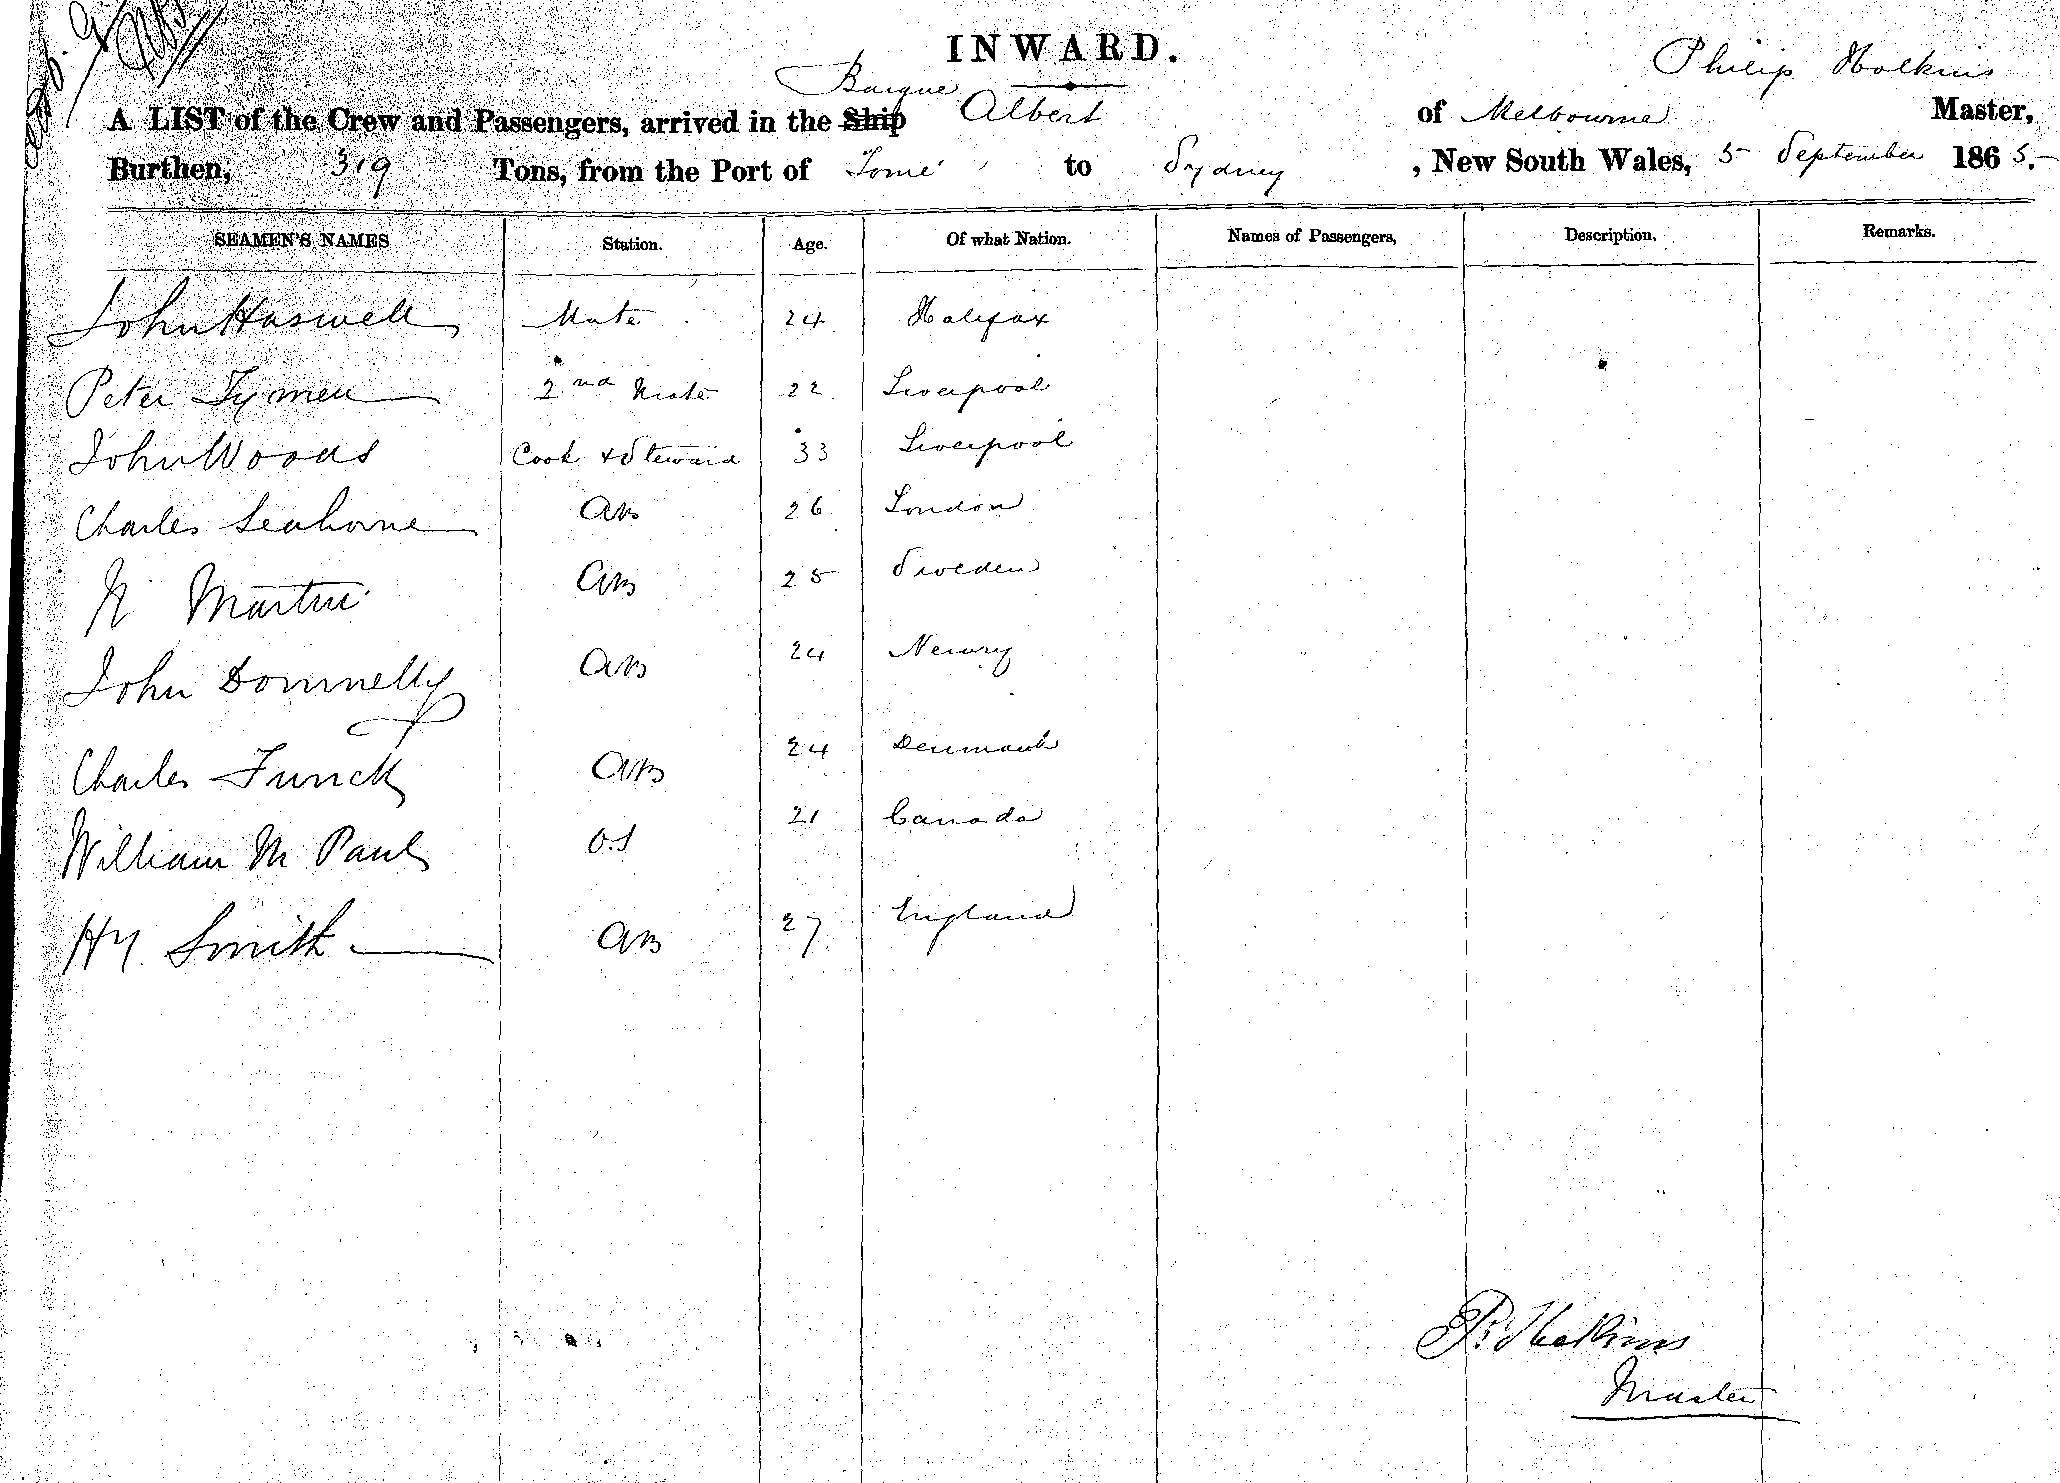 INWARD.
Barque Philip Holkins
A LIST of the Crew and Passengers, arrived in the Ship Albert of Melbourne Master,
Burthen, 319 Tons, from the Port of Tomé to Sydney , New South Wales, 5 September 1865.
SEAMEN'S NAMES Station. Age. Of what Nation. Names of Passengers, Description. Remarks.
John Haswell Mate 24 Halifax
Peter Tymen 2nd Mate 22 Liverpool
John Woods Cook + Steward 33 Liverpool
Charles Seahorne AB 26 London
N Martin AB 25 Sweden
John Donnelly AB 24 Newry
Charles Funck AB 24 Denmark
William M Paul O.S 21 Canada
Hy Smith AB 27 England
P. Holkins
Master